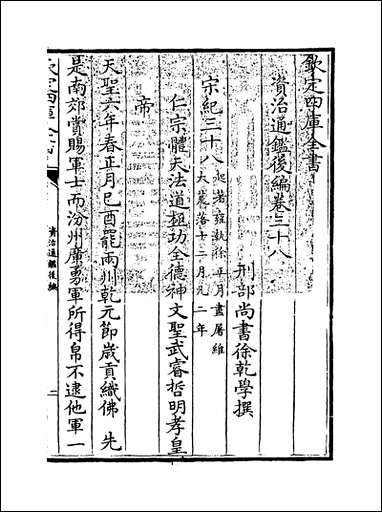 欽定四庫全書
資治通鑑後編卷三十八
刑部尚書徐乾學撰
宋紀三十八起著雍執徐正月盡屠維
大荒落十二月凡二年
仁宗體天法道極功全德神文聖武睿哲明孝皇
帝
天聖六年春正月己酉罷兩川乾元節歲貢織佛 先
是南郊賞賜軍士而汾州廣勇軍所得帛不逮他軍一
資治通鑑後編